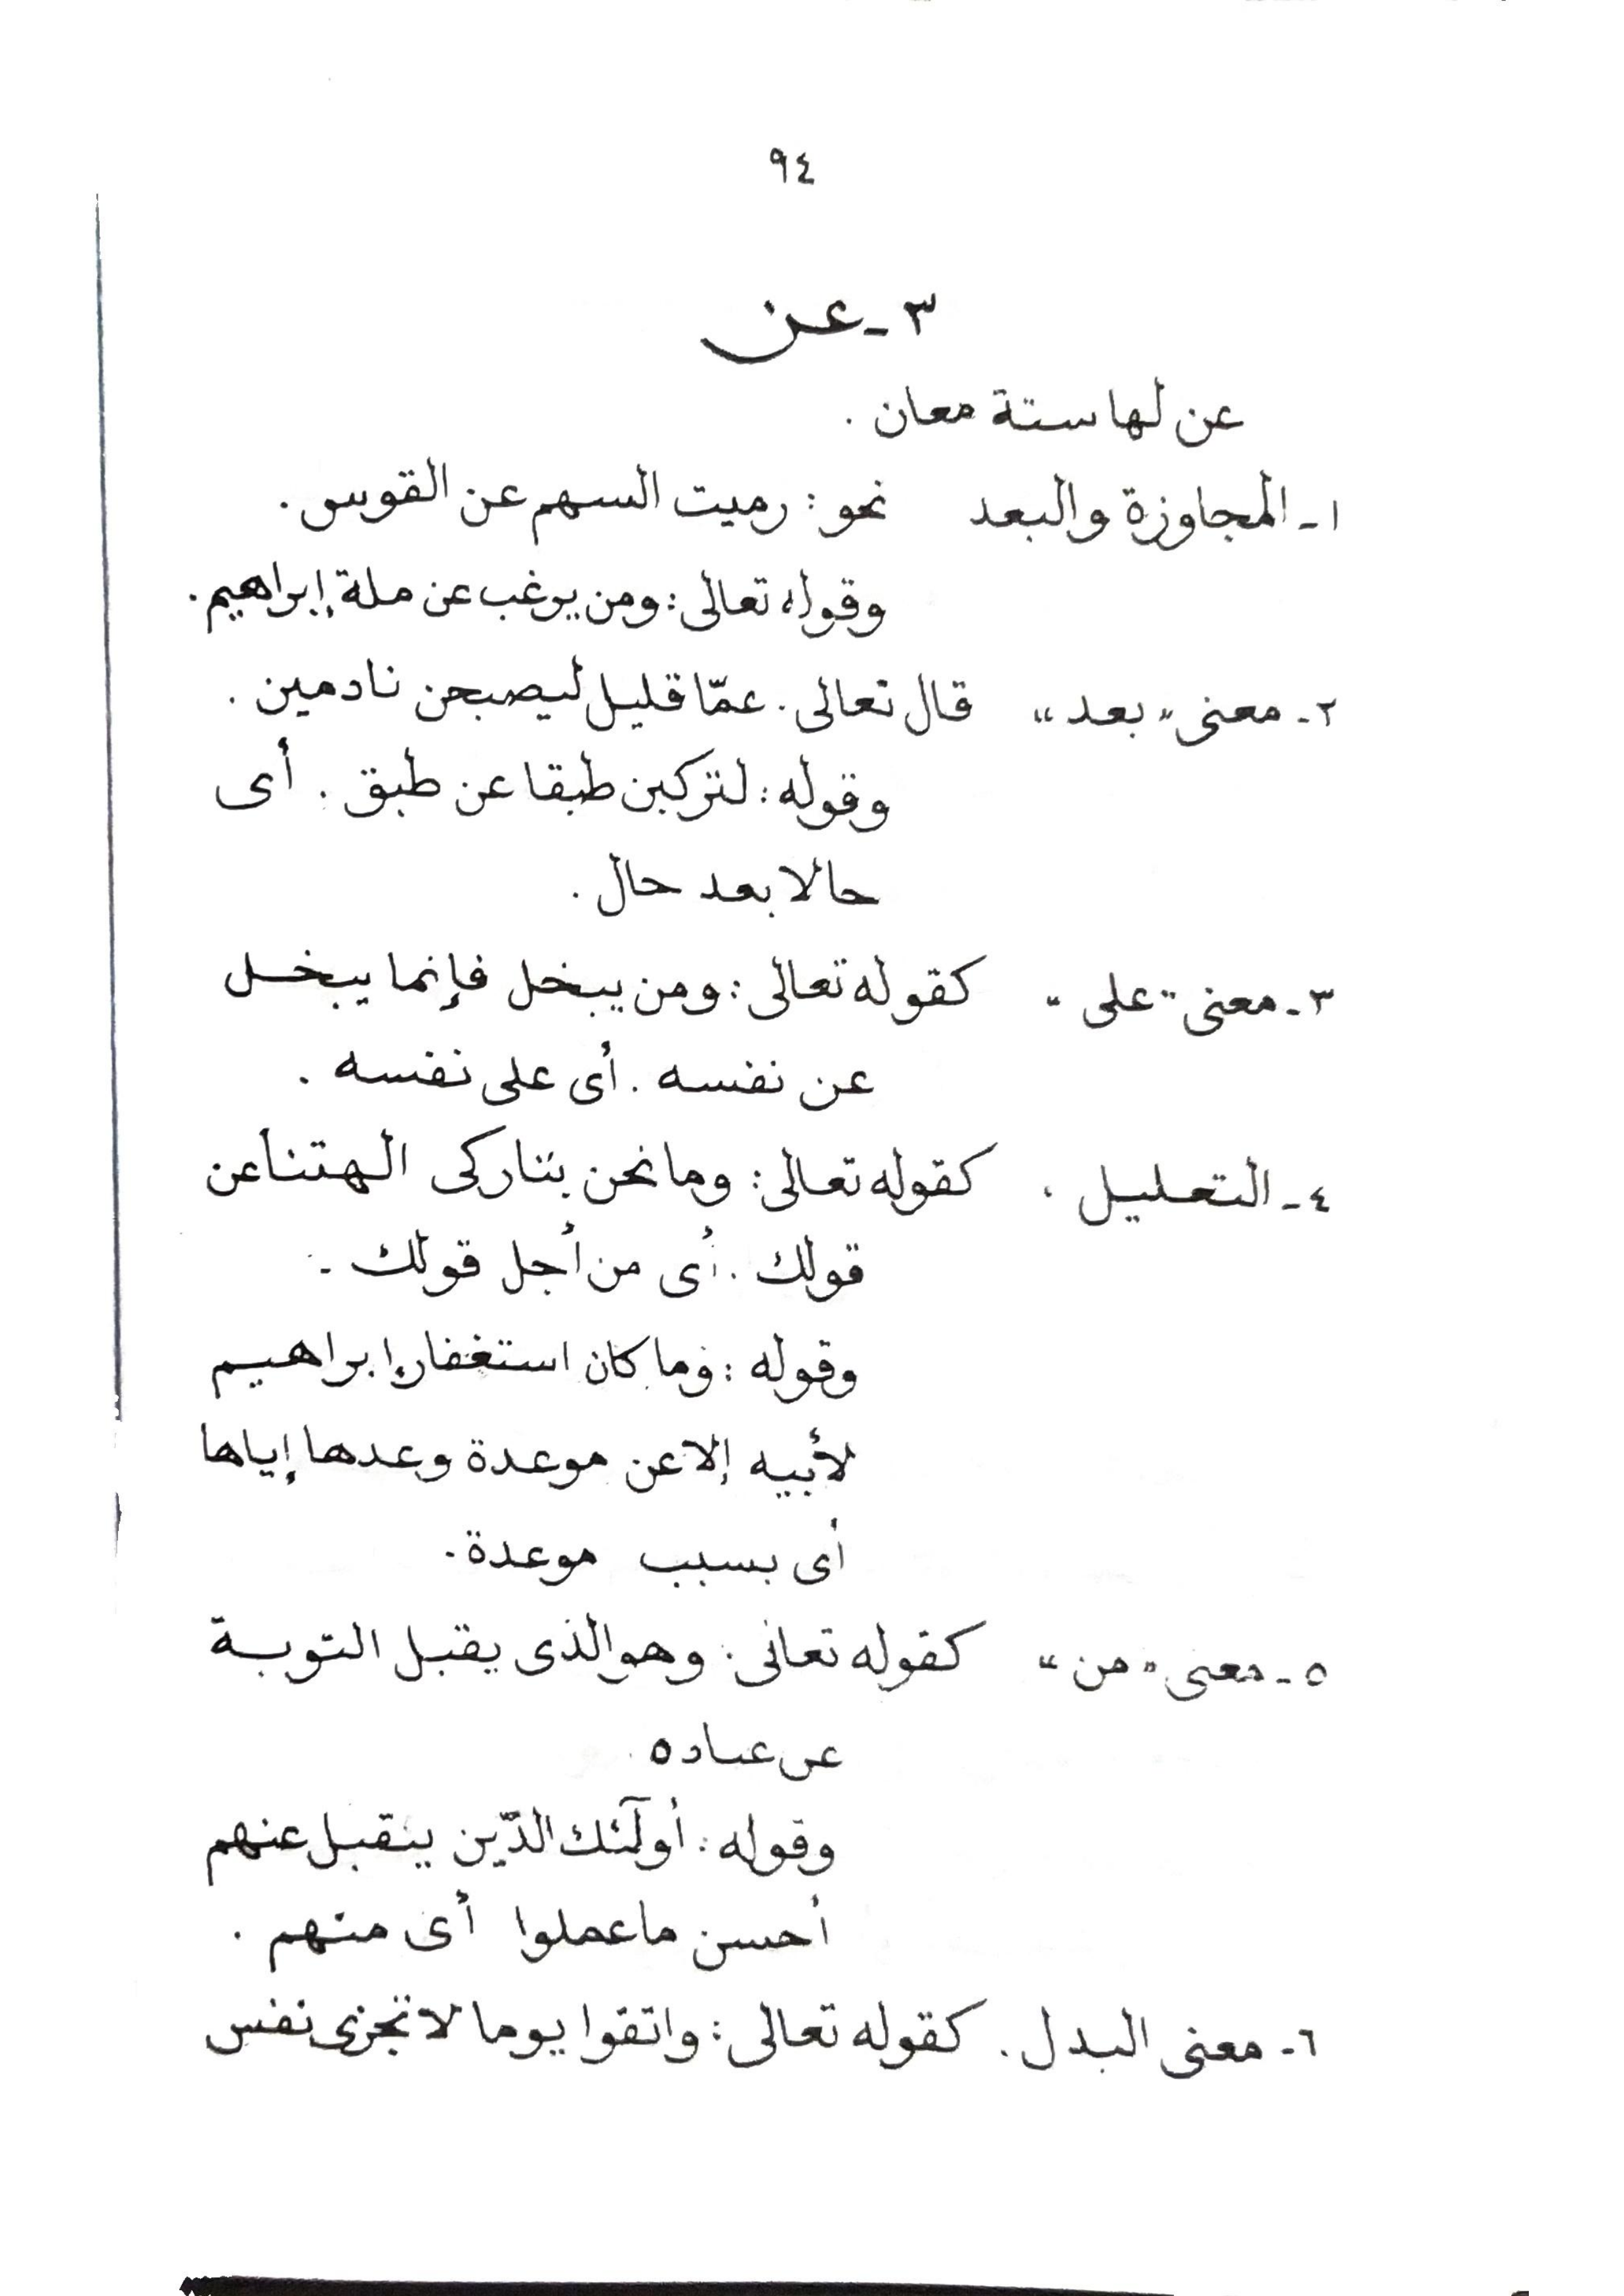 ٩٤
٣ - عن
عن لها ستة معان .
١ - المجاوزة والبعد نحو : رميت السهم عن القوس .
وقوله تعالى : ومن يرغب عن ملة إبراهيم .
٢ - معنى "بعد" قال تعالى . عمّا قليل ليصبحن نادمين .
وقوله : لتركبن طبقا عن طبق . أى
حالا بعد حال .
٣ - معنى "على" كقوله تعالى : ومن يبخل فإنما يبخل
عن نفسه . أى على نفسه .
٤ - التعليل . كقوله تعالى : وما نحن بتاركى الهتنا عن
قولك . أى من أجل قولك .
وقوله : وما كان استغفار إبراهيم
لأبيه إلا عن موعدة وعدها إياها
أى بسبب موعدة .
٥ - معنى "من" كقوله تعالى : وهو الذى يقبل التوبة
عن عباده
وقوله : أولئك الذّين يتقبل عنهم
أحسن ما عملوا أى منهم .
٦ - معنى البدل . كقوله تعالى : واتقوا يوما لا تجزى نفس